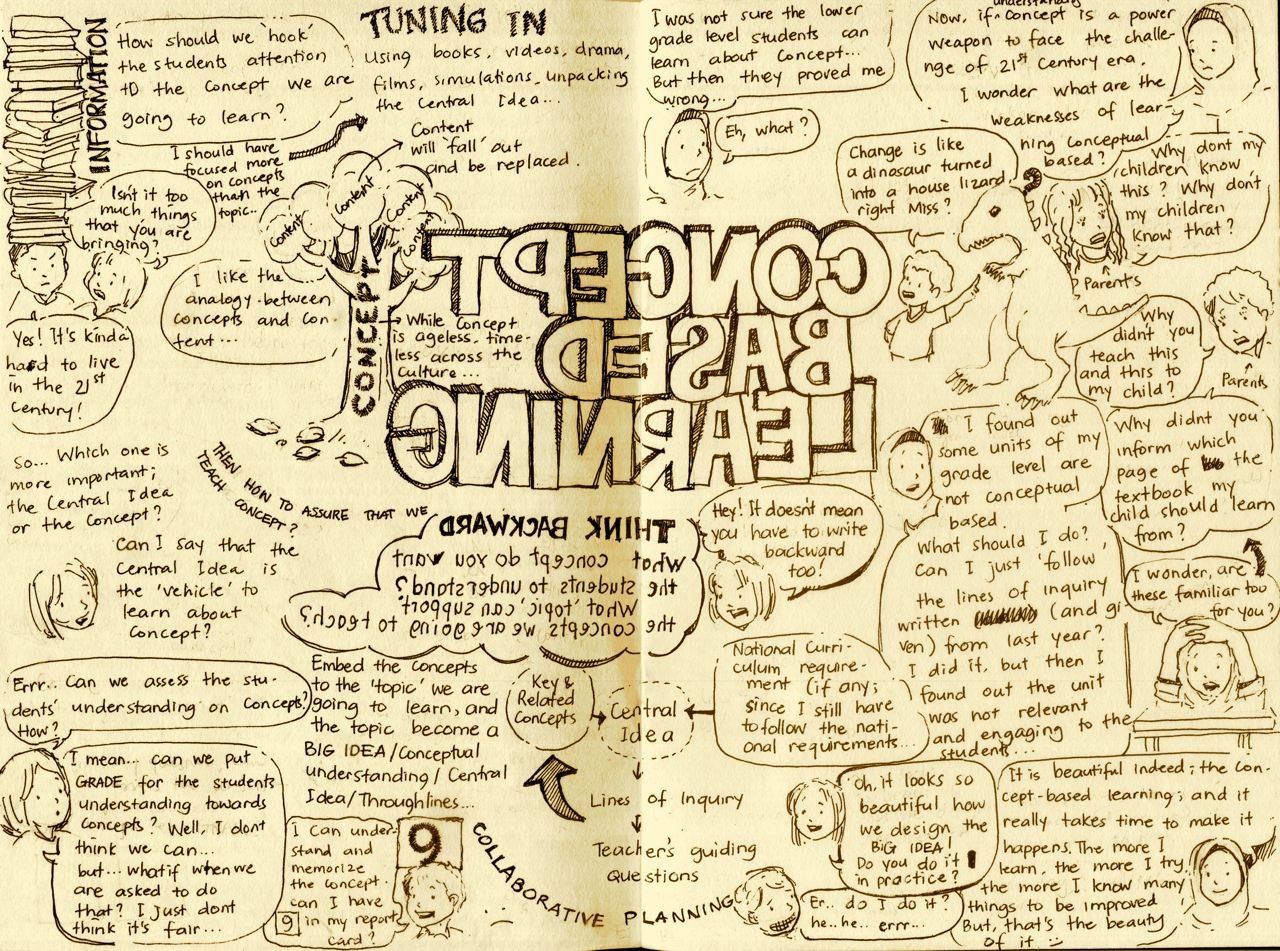 INFORMATION
How should we 'hook'
the students attention
to the concept we are
going to learn?
TUNING IN
Using books, videos, drama,
films, simulations, unpacking
the Central Idea...
Content
will 'fall' out
and be replaced.
I should have
focused more
on concepts
than the
topic..
Isn't it too
much things
that you are
bringing?
Yes! It's kinda
hard to live
in the 21st
Century!
I like the
analogy between
concepts and con-
tent...
Content
Content
Content
Content
CONCEPT
While Concept
is ageless, time-
less across the
culture...
I was not sure the lower
grade level students can
learn about Concept...
But then they proved me
wrong...
Eh, what?
understanding
Now, if ^ Concept is a power
weapon to face the challe-
nge of 21st Century era.
I wonder what are the
weaknesses of lear-
ning conceptual
based?
Change is like
a dinosaur turned
into a house lizard,
right Miss?
Why dont my
children know
this? Why don't
my children
know that?
Parents
Why
didnt you
teach this
and this to
my child?
Parents
Why didnt you
inform which
page of the
textbook my
child should learn
from?
I wonder, are
these familiar too
for you?
CONCEPT
BASED
LEARNING
So... Which one is
more important;
the Central Idea
or the Concept?
Can I say that the
Central Idea is
the 'vehicle' to
learn about
Concept?
THEN HOW TO ASSURE THAT WE
TEACH CONCEPT?
THINK BACKWARD
What concept do you want
the students to understand?
What 'topic' can support
the concepts we are going to teach?
Hey! It doesn't mean
you have to write
backward
too!
I found out
some units of my
grade level are
not conceptual
based.
What should I do?
Can I just 'follow'
the lines of inquiry
written (and gi
ven) from last year?
I did it, but then I
found out the unit
was not relevant
and engaging to the
students...
Errr.. Can we assess the stu-
dents' understanding on Concepts?
How?
I mean... can we put
GRADE for the students
understanding towards
concepts? Well, I dont
think we can...
but... what if when we
are asked to do
that? I just dont
think it's fair...
Embed the concepts
to the 'topic' we are
going to learn, and
the topic become a
BIG IDEA/Conceptual
understanding/Central
Idea/Throughlines...
Key &
Related
Concepts
Central
Idea
National Curri-
culum require-
ment (if any;
since I still have
to follow the nati-
onal requirements...
Lines of Inquiry
Teacher's guiding
Questions
COLLABORATIVE PLANNING
I can under-
stand and
memorize
the concept.
can I have
9 in my report
card?
9
Oh, it looks so
beautiful how
we design the
BIG IDEA!
Do you do it
in practice?
Er.. do I do it?
he..he.. errr...
It is beautiful indeed; the con-
cept-based learning; and it
really takes time to make it
happens. The more I
learn, the more I try,
the more I know many
things to be improved
But, that's the beauty
of it :)